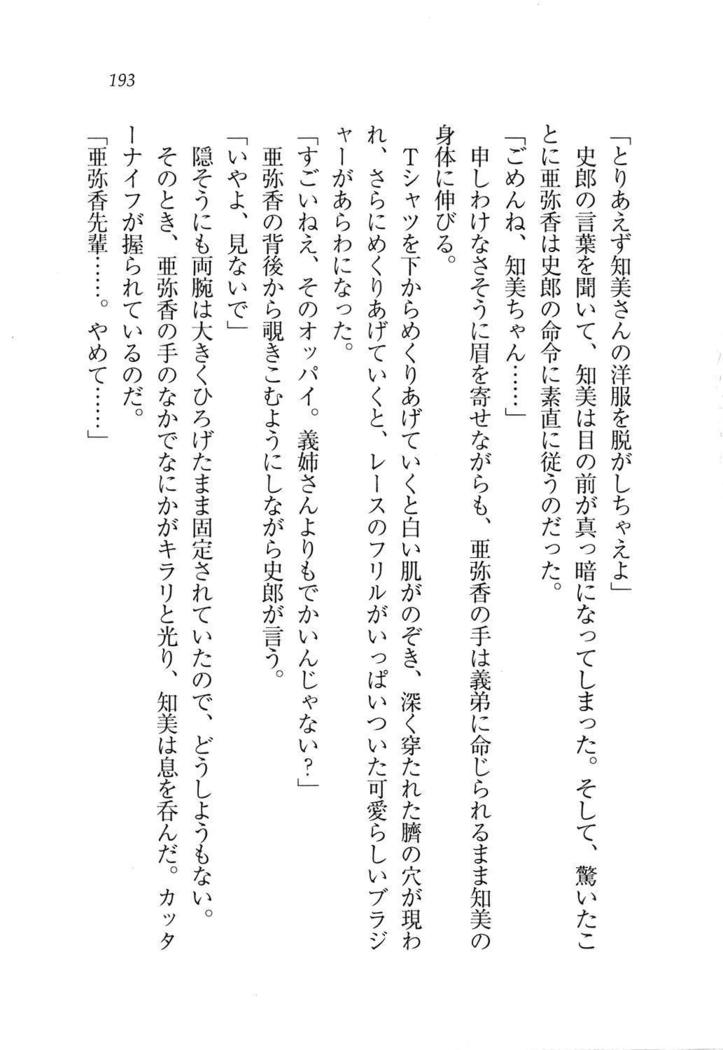 193
「とりあえず知美さんの洋服を脱がしちゃえよ」
史郎の言葉を聞いて、知美は目の前が真っ暗になってしまった。そして、驚いたこ
とに亜弥香は史郎の命令に素直に従うのだった。
「ごめんね、知美ちゃん……」
申しわけなさそうに眉を寄せながらも、亜弥香の手は義弟に命じられるまま知美の
身体に伸びる。
Tシャツを下からめくりあげていくと白い肌がのぞき、深く穿たれた臍の穴が現わ
れ、さらにめくりあげていくと、レースのフリルがいっぱいついた可愛らしいブラジ
ャーがあらわになった。
「すごいねえ、そのオッパイ。義姉さんよりもでかいんじゃない?」
亜弥香の背後から覗きこむようにしながら史郎が言う。
「いやよ、見ないで」
隠そうにも両腕は大きくひろげたまま固定されていたので、どうしようもない。
そのとき、亜弥香の手のなかでなにかがキラリと光り、知美は息を呑んだ。カッタ
ーナイフが握られているのだ。
「亜弥香先輩……。やめて……」